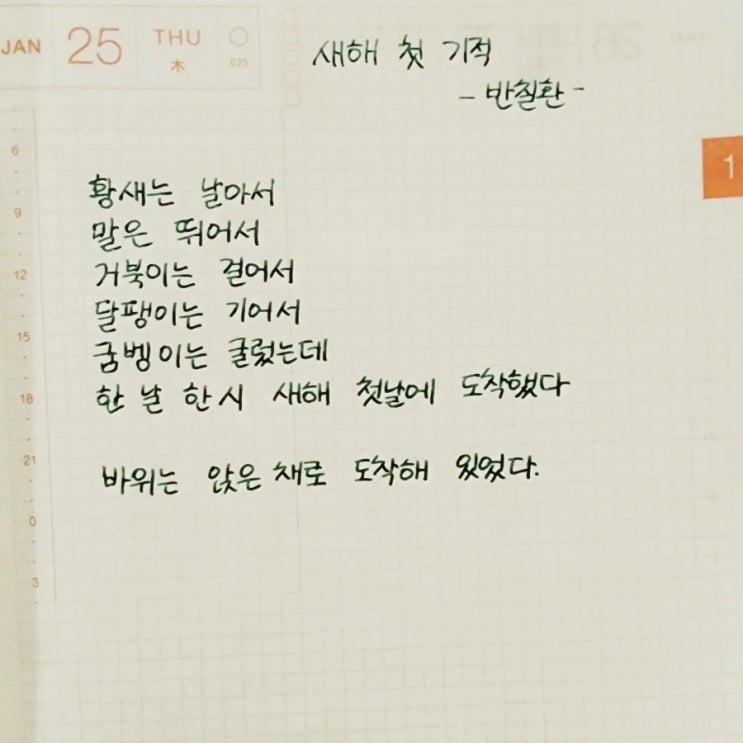 JAN 25 THU
木 025
새해 첫 기적
- 반칠환 -
1
6
9
12
15
18
21
0
3
황새는 날아서
말은 뛰어서
거북이는 걸어서
달팽이는 기어서
굼벵이는 굴렀는데
한 날 한 시 새해 첫날에 도착했다
바위는 앉은 채로 도착해 있었다.